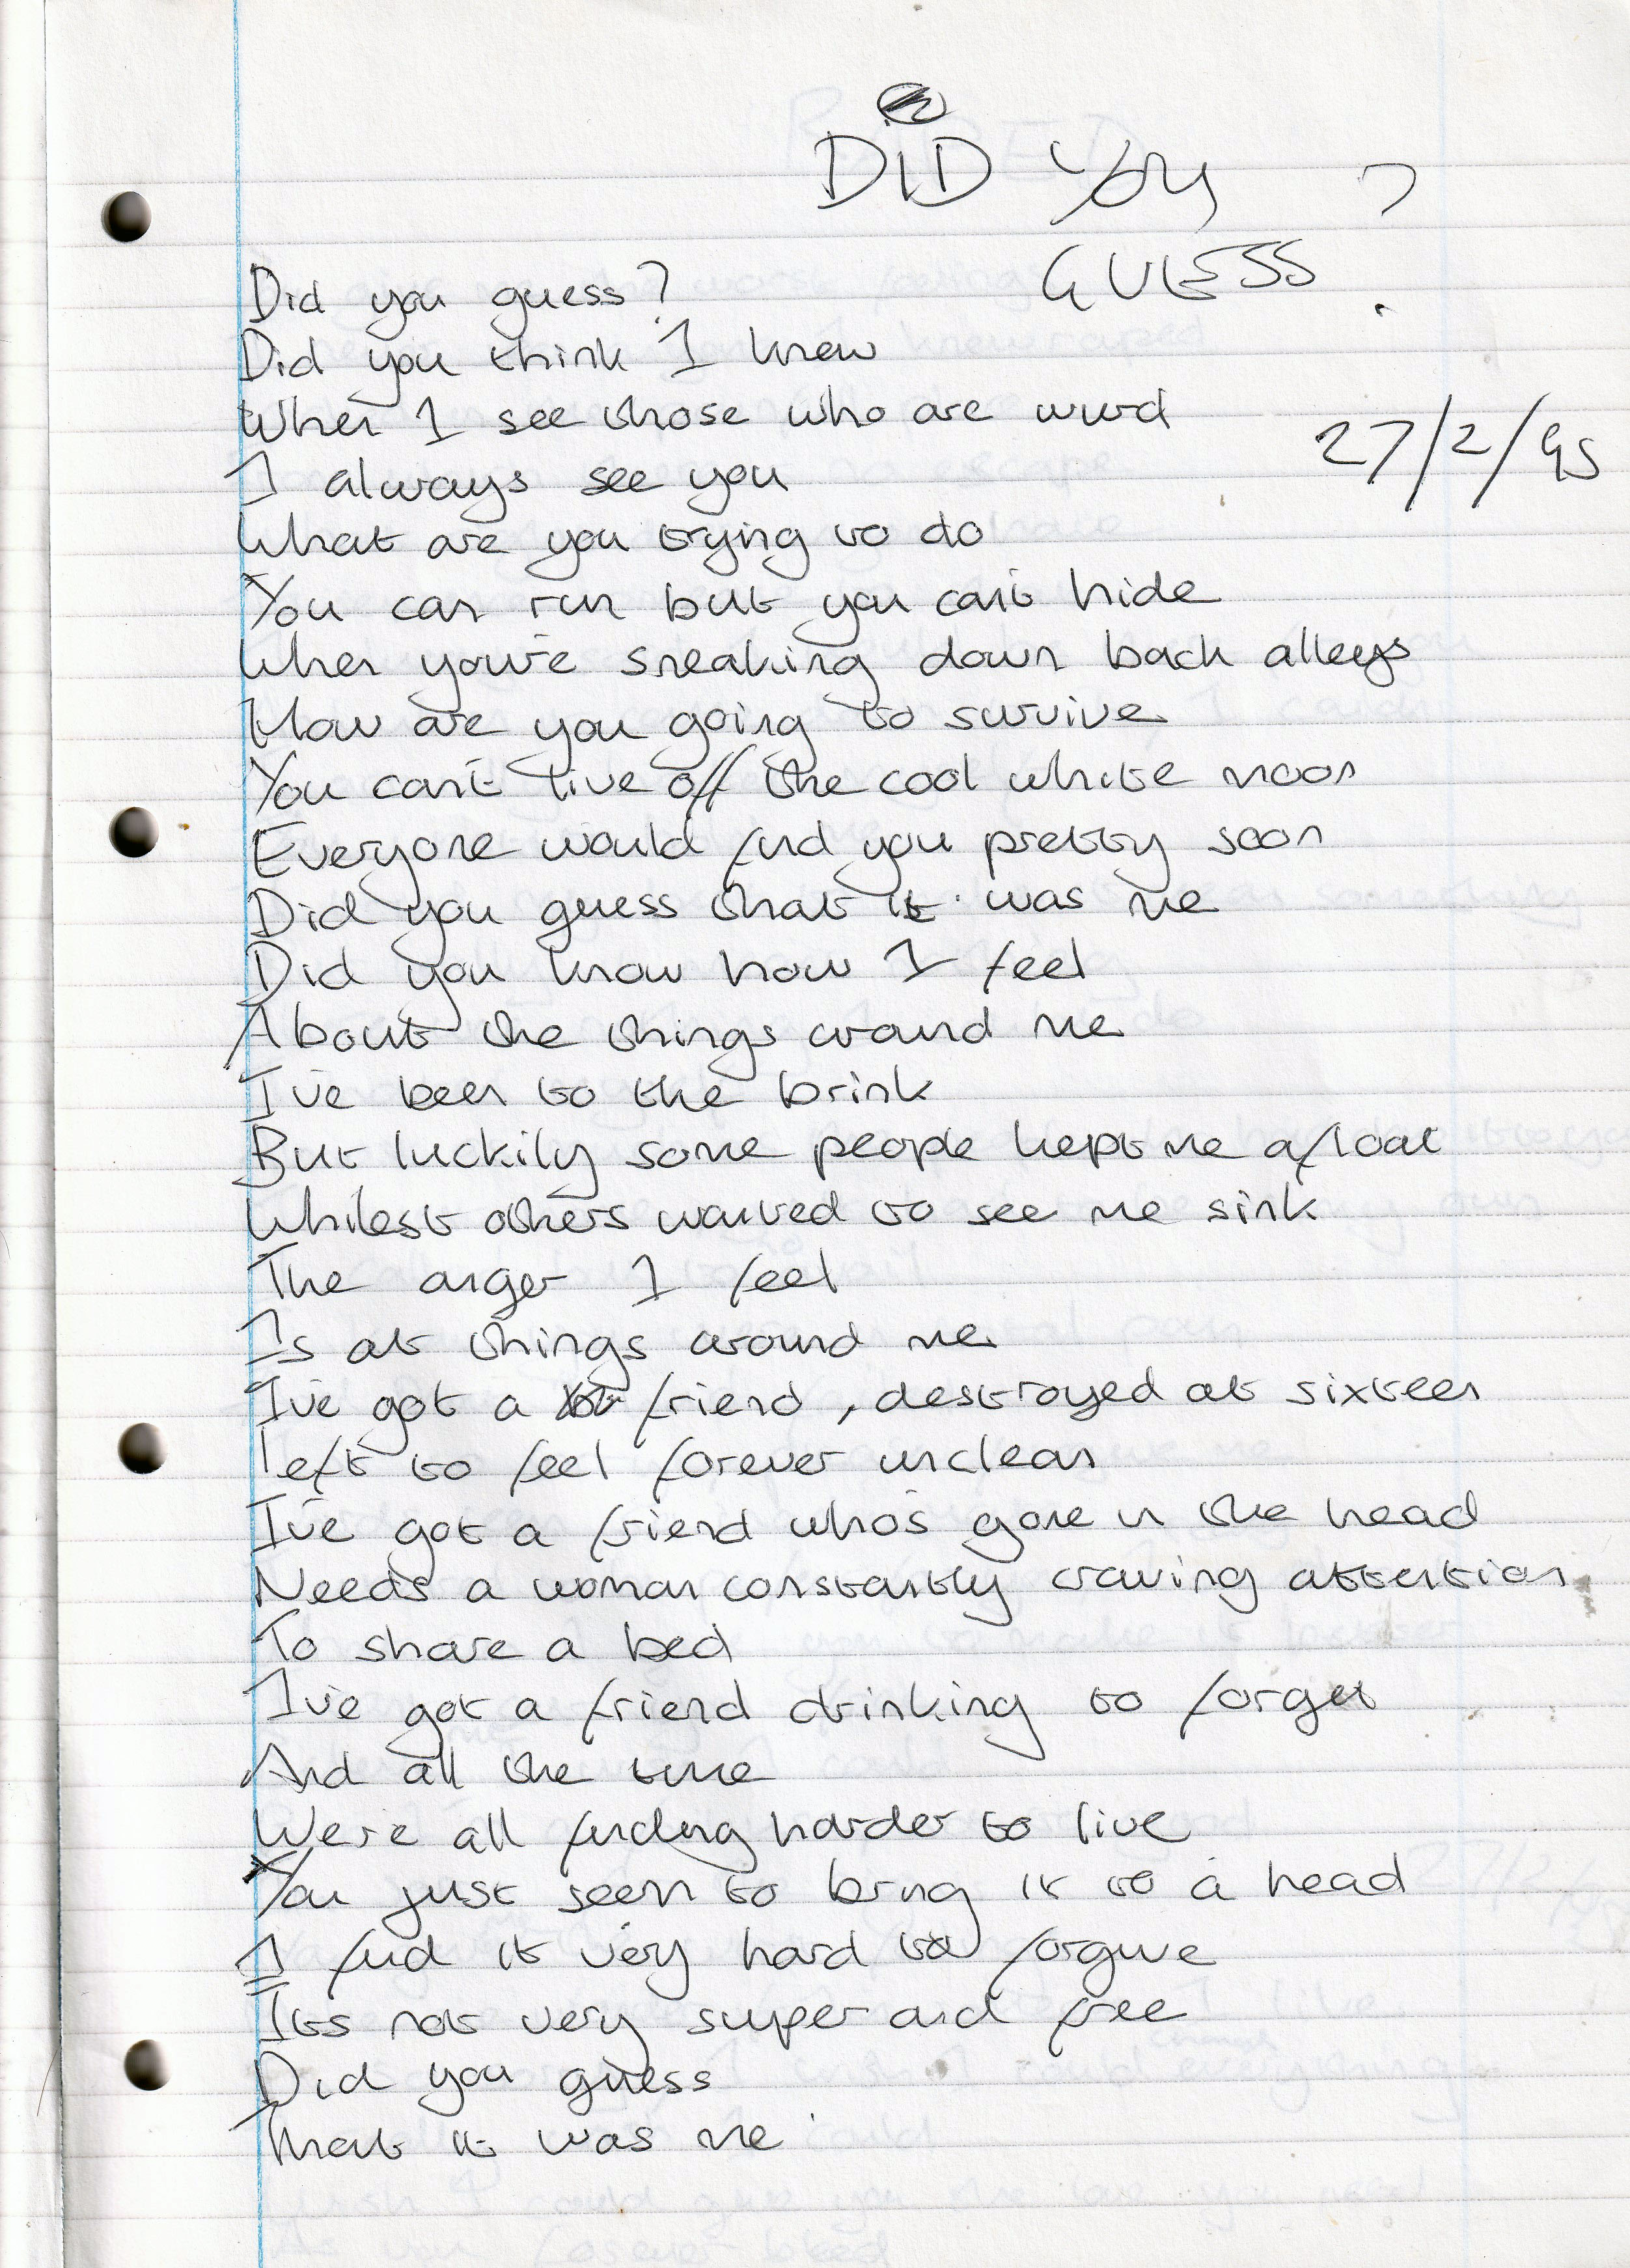 DID YOU
GUESS ?
Did you guess?
Did you think I knew
27/2/95
When I see those who are weird
I always see you
What are you trying to do
You can run but you can't hide
When you're sneaking down back alleys
How are you going to survive
You can't live off the cool white moon
Everyone would find you pretty soon
Did you guess that it was me
Did you know how I feel
About the things around me
I've been to the brink
But luckily some people kept me afloat
Whilest others waited to see me sink
The anger I feel
Is at things around me
I've got a friend, destroyed at sixteen
Left to feel forever unclean
I've got a friend who's gone in the head
Needs a woman constantly craving attention
To share a bed
I've got a friend drinking to forget
And all the time
We're all finding harder to live
You just seem to bring it to a head
I find it very hard to forgive
Its not very super and free
Did you guess
That it was me